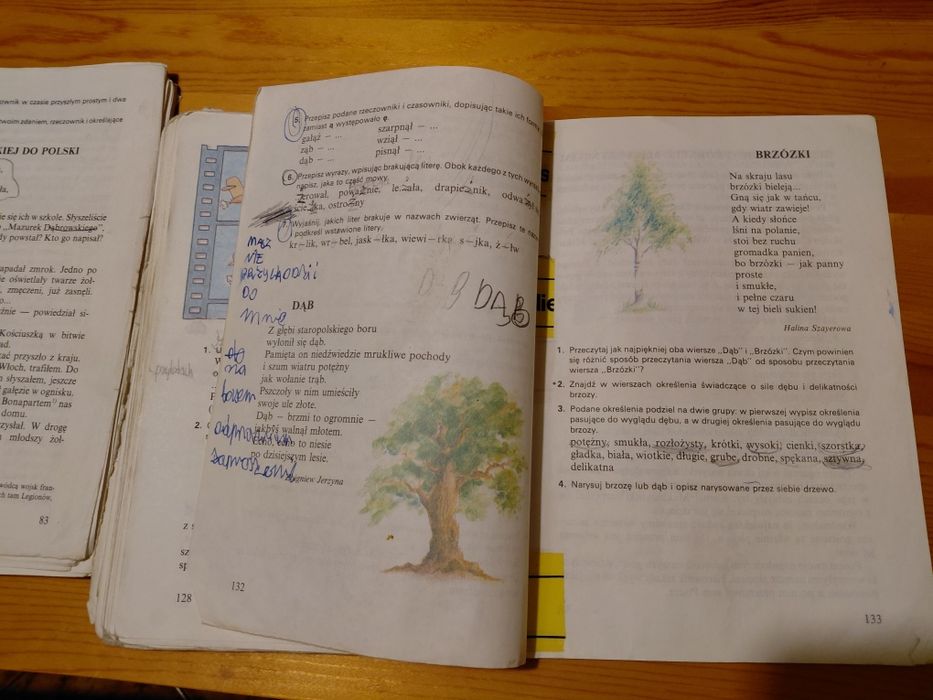 zownik w czasie przyszłym prostym i dwa
twoim zdaniem, rzeczownik i określające
KIEJ DO POLSKI
ła,
się ich w szkole. Słyszeliście
„Mazurek Dąbrowskiego",
dy powstał? Kto go napisał?
apadał zmrok. Jedno po
ie oświetlały twarze żoł-
zmęczeni, już zasnęli.
źnie — powiedział si-
Kościuszką w bitwie
ad.
zać przyszło z kraju.
Włoch, trafiłem. Do
słyszałem, jeszcze
gałęzie w ognisku.
Bonapartem nas
domu.
rzysłał. W drogę
młodszy żoł-
wódcą wojsk fran-
ch tam Legionów,
83
1.
2.
128
5. Przepisz podane rzeczowniki i czasowniki, dopisując takie ich formy
zamiast ą występowało ę.
gałąź — ... szarpnął — ...
ząb — ... wziął — ...
dąb — ... pisnął — ...
6. Przepisz wyrazy, wpisując brakującą literę. Obok każdego z tych
napisz, jaka to część mowy.
żerował, poważnie, leżała, drapieżnik,
ścieżka, ostrożny
7. Wyjaśnij, jakich liter brakuje w nazwach zwierząt. Przepisz te
podkreśl wstawione litery.
kr–lik, wr–bel, jask–łka, wiewi–rka, s–jka, ż–łw
NIE
DO
mnie
na
DĄB
DĄB
Z głębi staropolskiego boru
wyłonił się dąb.
Pamięta on niedźwiedzie mrukliwe pochody
i szum wiatru potężny
jak wołanie trąb.
Pszczoły w nim umieściły
swoje ule złote.
Dąb – brzmi to ogromnie –
jakbyś walnął młotem.
Echo, echo to niesie
po dzisiejszym lesie.
Zbigniew Jerzyna
132
BRZÓZKI
Na skraju lasu
brzózki bieleją...
Gną się jak w tańcu,
gdy wiatr zawieje!
A kiedy słońce
lśni na polanie,
stoi bez ruchu
gromadka panien,
bo brzózki — jak panny
proste
i smukłe,
i pełne czaru
w tej bieli sukien!
Halina Szayerowa
1. Przeczytaj jak najpiękniej oba wiersze „Dąb" i „Brzózki". Czym powinien
się różnić sposób przeczytania wiersza „Dąb" od sposobu przeczytania
wiersza „Brzózki"?
*2. Znajdź w wierszach określenia świadczące o sile dębu i delikatności
brzozy.
3. Podane określenia podziel na dwie grupy: w pierwszej wypisz określenia
pasujące do wyglądu dębu, a w drugiej określenia pasujące do wyglądu
brzozy.
potężny, smukła, rozłożysty, krótki, wysoki, cienki, szorstka,
gładka, biała, wiotkie, długie, grube, drobne, spękana, sztywna,
delikatna
4. Narysuj brzozę lub dąb i opisz narysowane przez siebie drzewo.
133